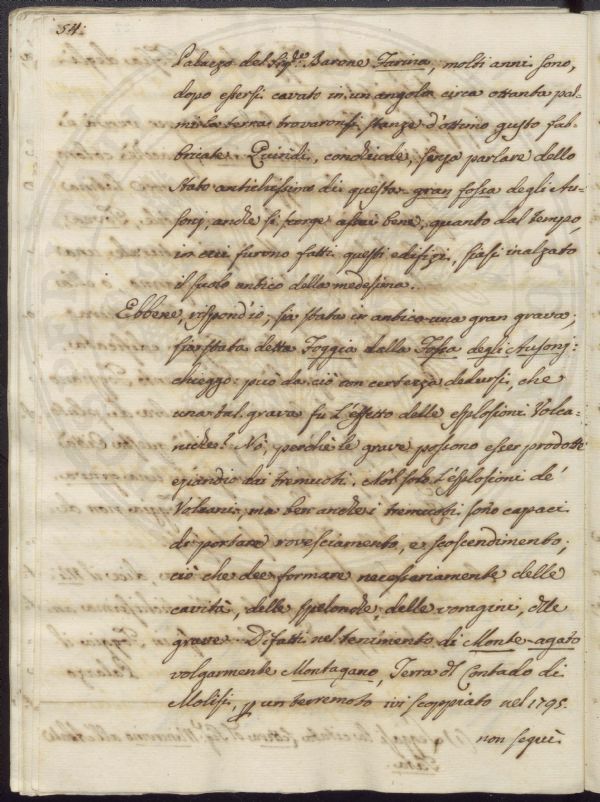 54.
Palazzo del Sig.r Barone Farina, molti anni sono,
dopo essersi cavato in un angolo circa ottanta pal-
mi la terra, trovaronsi stanze d'ottimo gusto fab-
bricate. Quindi, conchiude, senza parlare dello
stato antichissimo di questa gran fossa degli Au-
sonj, anche si scorge assai bene, quanto dal tempo,
in cui furono fatti questi edifizj, siasi inalzato
il suolo antico della medesima.
Ebbene, rispond'io, sia stata in antico una gran grava;
sia stata detta Foggia dalla Fossa degli Ausonj:
chieggo: può da ciò con certezza dedursi, che
una tal grava fu l'effetto delle esplosioni Volca-
niche? Nò, perchè le grave possono esser prodotte
eziandio dai tremuoti. Non solo l'esplosioni de'
Volcani, ma ben anche i tremuoti sono capaci
di portare rovesciamento, e scoscendimento;
ciò che dee formare necessariamente delle
cavità, delle spelonche, delle voragini, delle
grave. Difatti nel tenimento di Monte-agato
volgarmente Montagano, Terra del Contado di
Molisi, per un terremoto ivi scoppiato nel 1795.
non seguì